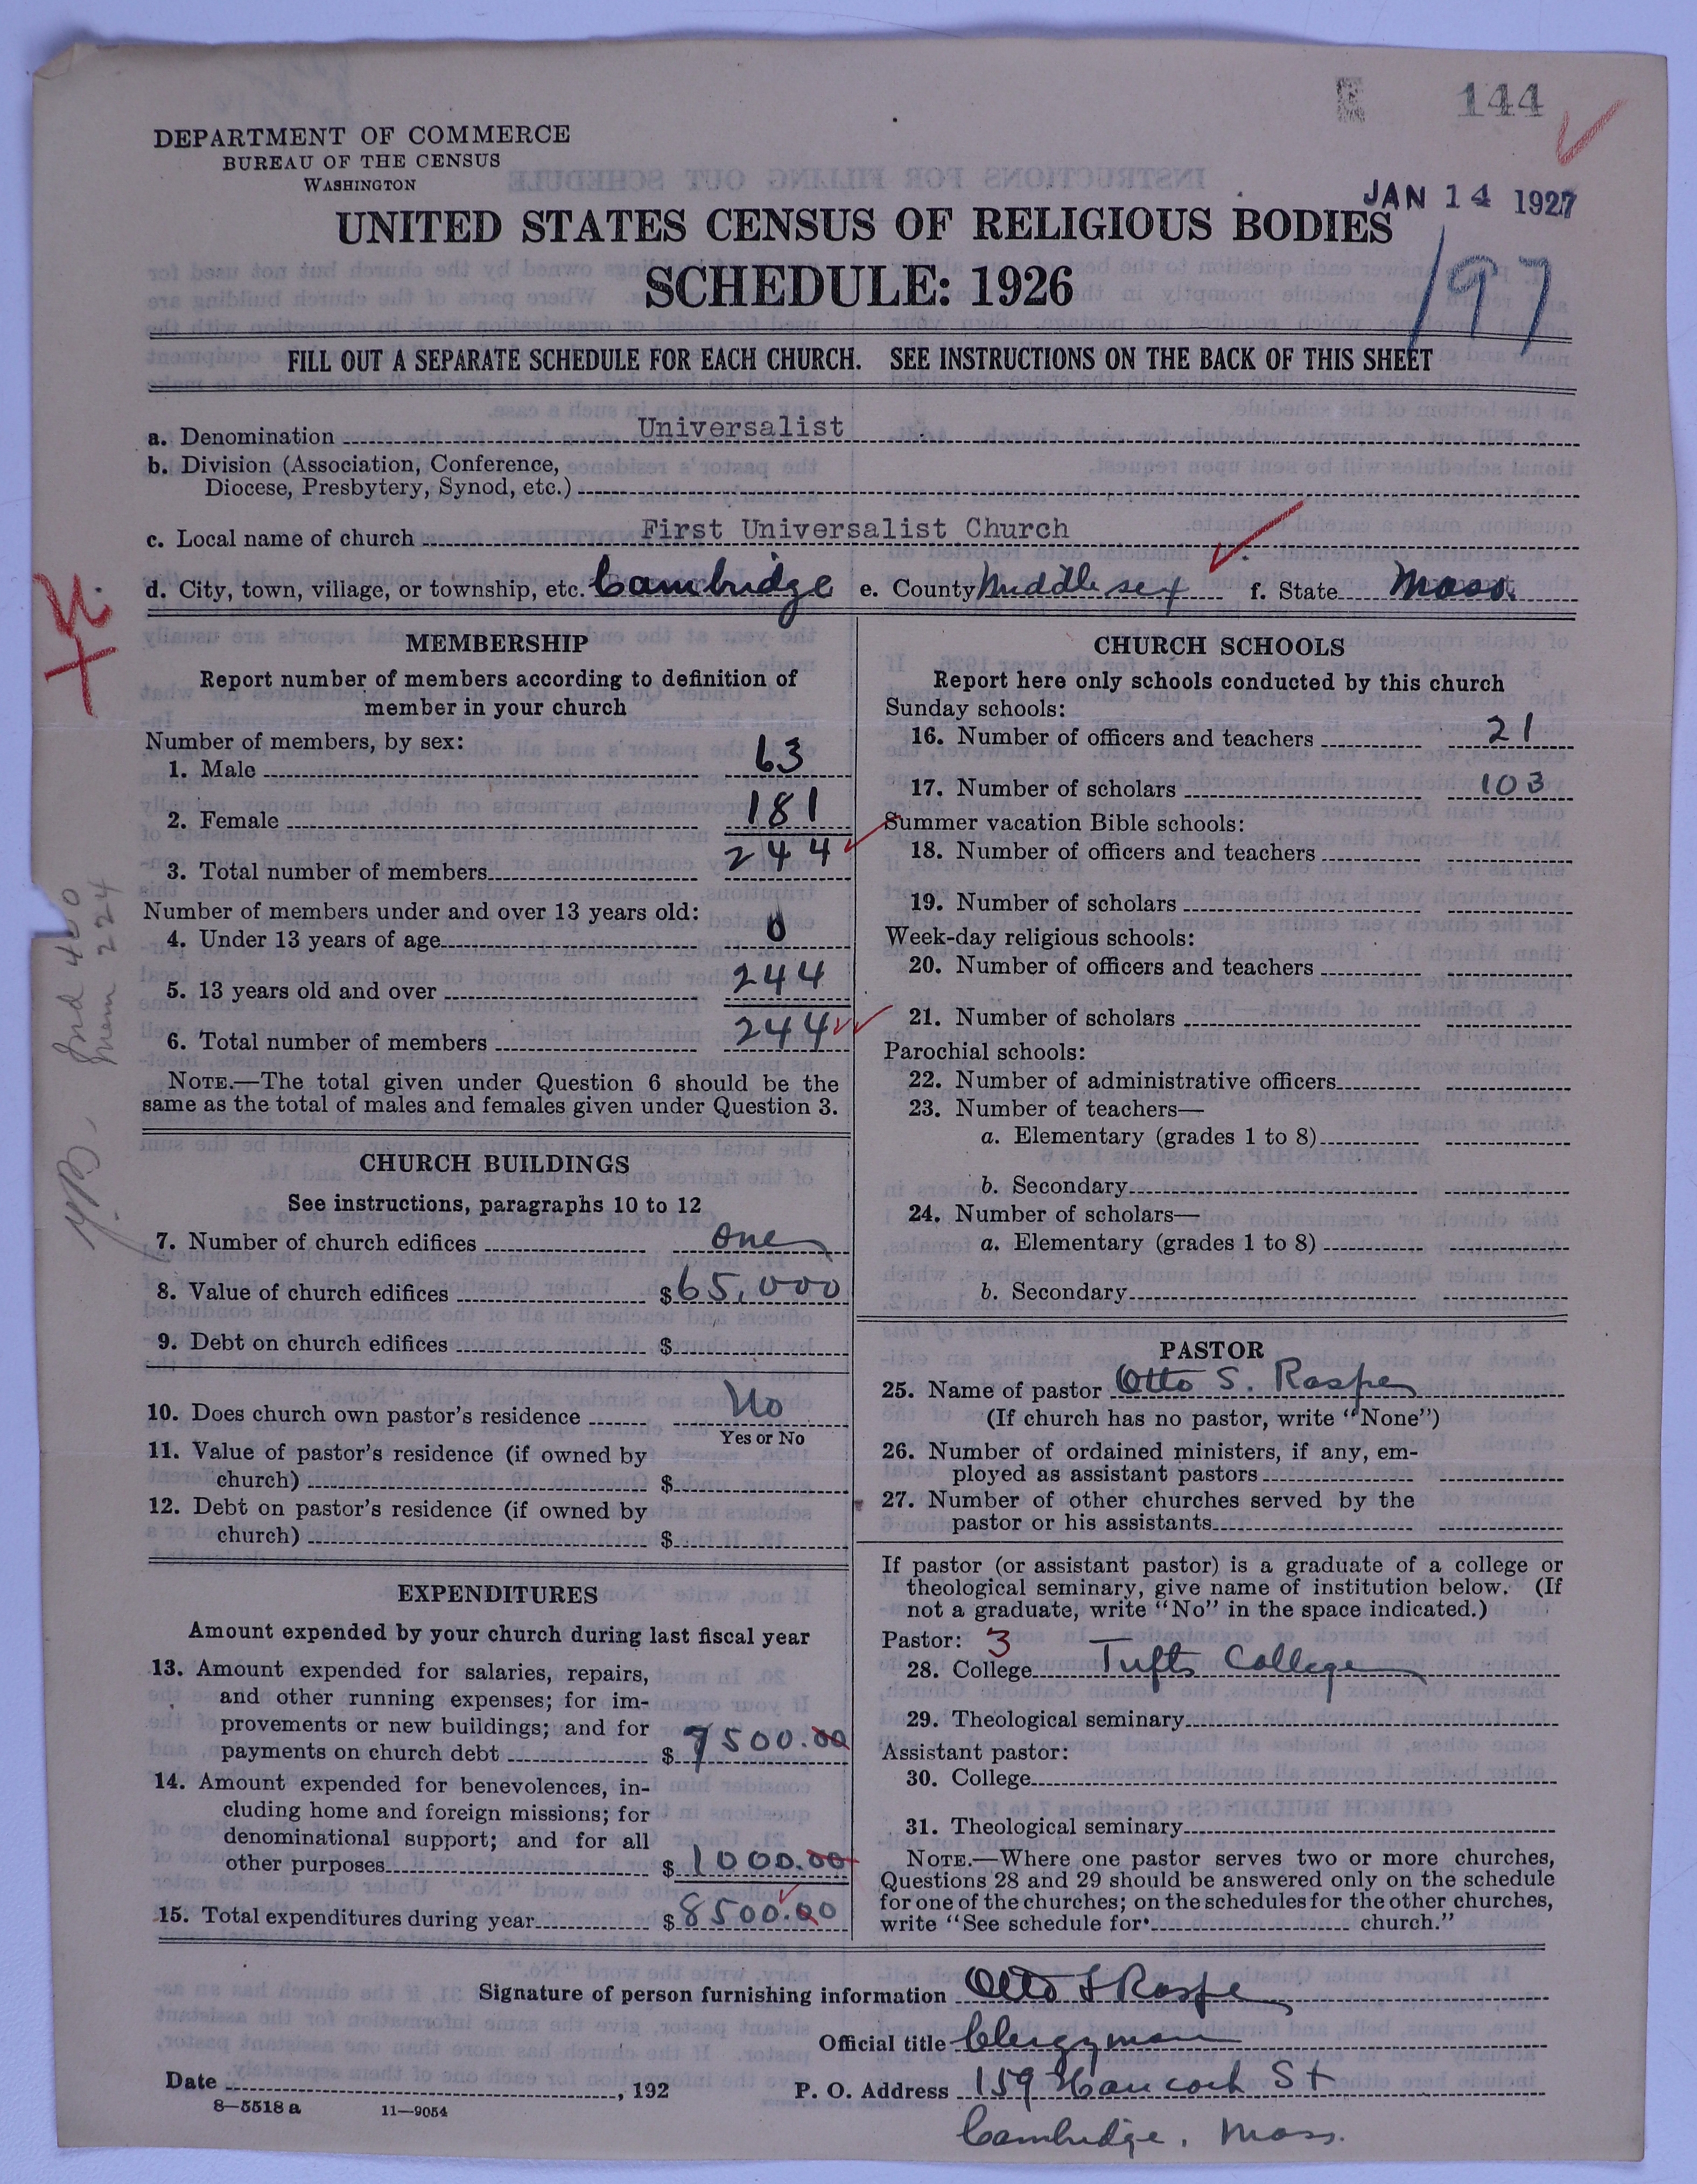 144
DEPARTMENT OF COMMERCE
BUREAU OF THE CENSUS
WASHINGTON
JAN 14 1927
UNITED STATES CENSUS OF RELIGIOUS BODIES
SCHEDULE: 1926
197
FILL OUT A SEPARATE SCHEDULE FOR EACH CHURCH. SEE INSTRUCTIONS ON THE BACK OF THIS SHEET
a. Denomination Universalist
b. Division (Association, Conference,
Diocese, Presbytery, Synod, etc.)
c. Local name of church First Universalist Church
d. City, town, village, or township, etc. Cambridge e. County Middlesex f. State Mass.
MEMBERSHIP
Report number of members according to definition of
member in your church
Number of members, by sex:
1. Male 63
2. Female 181
3. Total number of members 244
Number of members under and over 13 years old:
4. Under 13 years of age 0
5. 13 years old and over 244
6. Total number of members 244
NOTE.—The total given under Question 6 should be the
same as the total of males and females given under Question 3.
Y.B. Ind 400
Mem 224
CHURCH BUILDINGS
See instructions, paragraphs 10 to 12
7. Number of church edifices One
8. Value of church edifices $65,000
9. Debt on church edifices $
10. Does church own pastor's residence No
Yes or No
11. Value of pastor's residence (if owned by
church) $
12. Debt on pastor's residence (if owned by
church) $
EXPENDITURES
Amount expended by your church during last fiscal year
13. Amount expended for salaries, repairs,
and other running expenses; for im-
provements or new buildings; and for
payments on church debt $7500.00
14. Amount expended for benevolences, in-
cluding home and foreign missions; for
denominational support; and for all
other purposes $1000.00
15. Total expenditures during year $8500.00
CHURCH SCHOOLS
Report here only schools conducted by this church
Sunday schools:
16. Number of officers and teachers 21
17. Number of scholars 103
Summer vacation Bible schools:
18. Number of officers and teachers
19. Number of scholars
Week-day religious schools:
20. Number of officers and teachers
21. Number of scholars
Parochial schools:
22. Number of administrative officers
23. Number of teachers—
a. Elementary (grades 1 to 8)
b. Secondary
24. Number of scholars—
a. Elementary (grades 1 to 8)
b. Secondary
PASTOR
25. Name of pastor Otto S. Raspe
(If church has no pastor, write "None")
26. Number of ordained ministers, if any, em-
ployed as assistant pastors
27. Number of other churches served by the
pastor or his assistants
If pastor (or assistant pastor) is a graduate of a college or
theological seminary, give name of institution below. (If
not a graduate, write "No" in the space indicated.)
Pastor: 3
28. College Tufts College
29. Theological seminary
Assistant pastor:
30. College
31. Theological seminary
NOTE.—Where one pastor serves two or more churches,
Questions 28 and 29 should be answered only on the schedule
for one of the churches; on the schedules for the other churches,
write "See schedule for church."
Signature of person furnishing information Otto S Raspe
Official title Clergyman
Date , 192
P. O. Address 159 Hancock St
8—5518 a 11—9054
Cambridge, Mass.